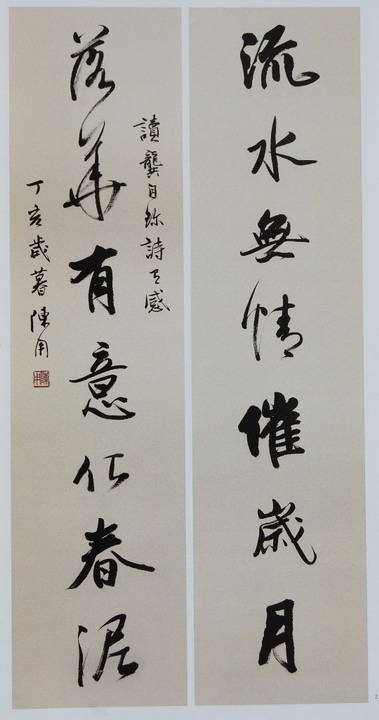 流水無情催歲月
落華有意化春泥
讀龔自珍詩有感
丁亥歲暮陳用